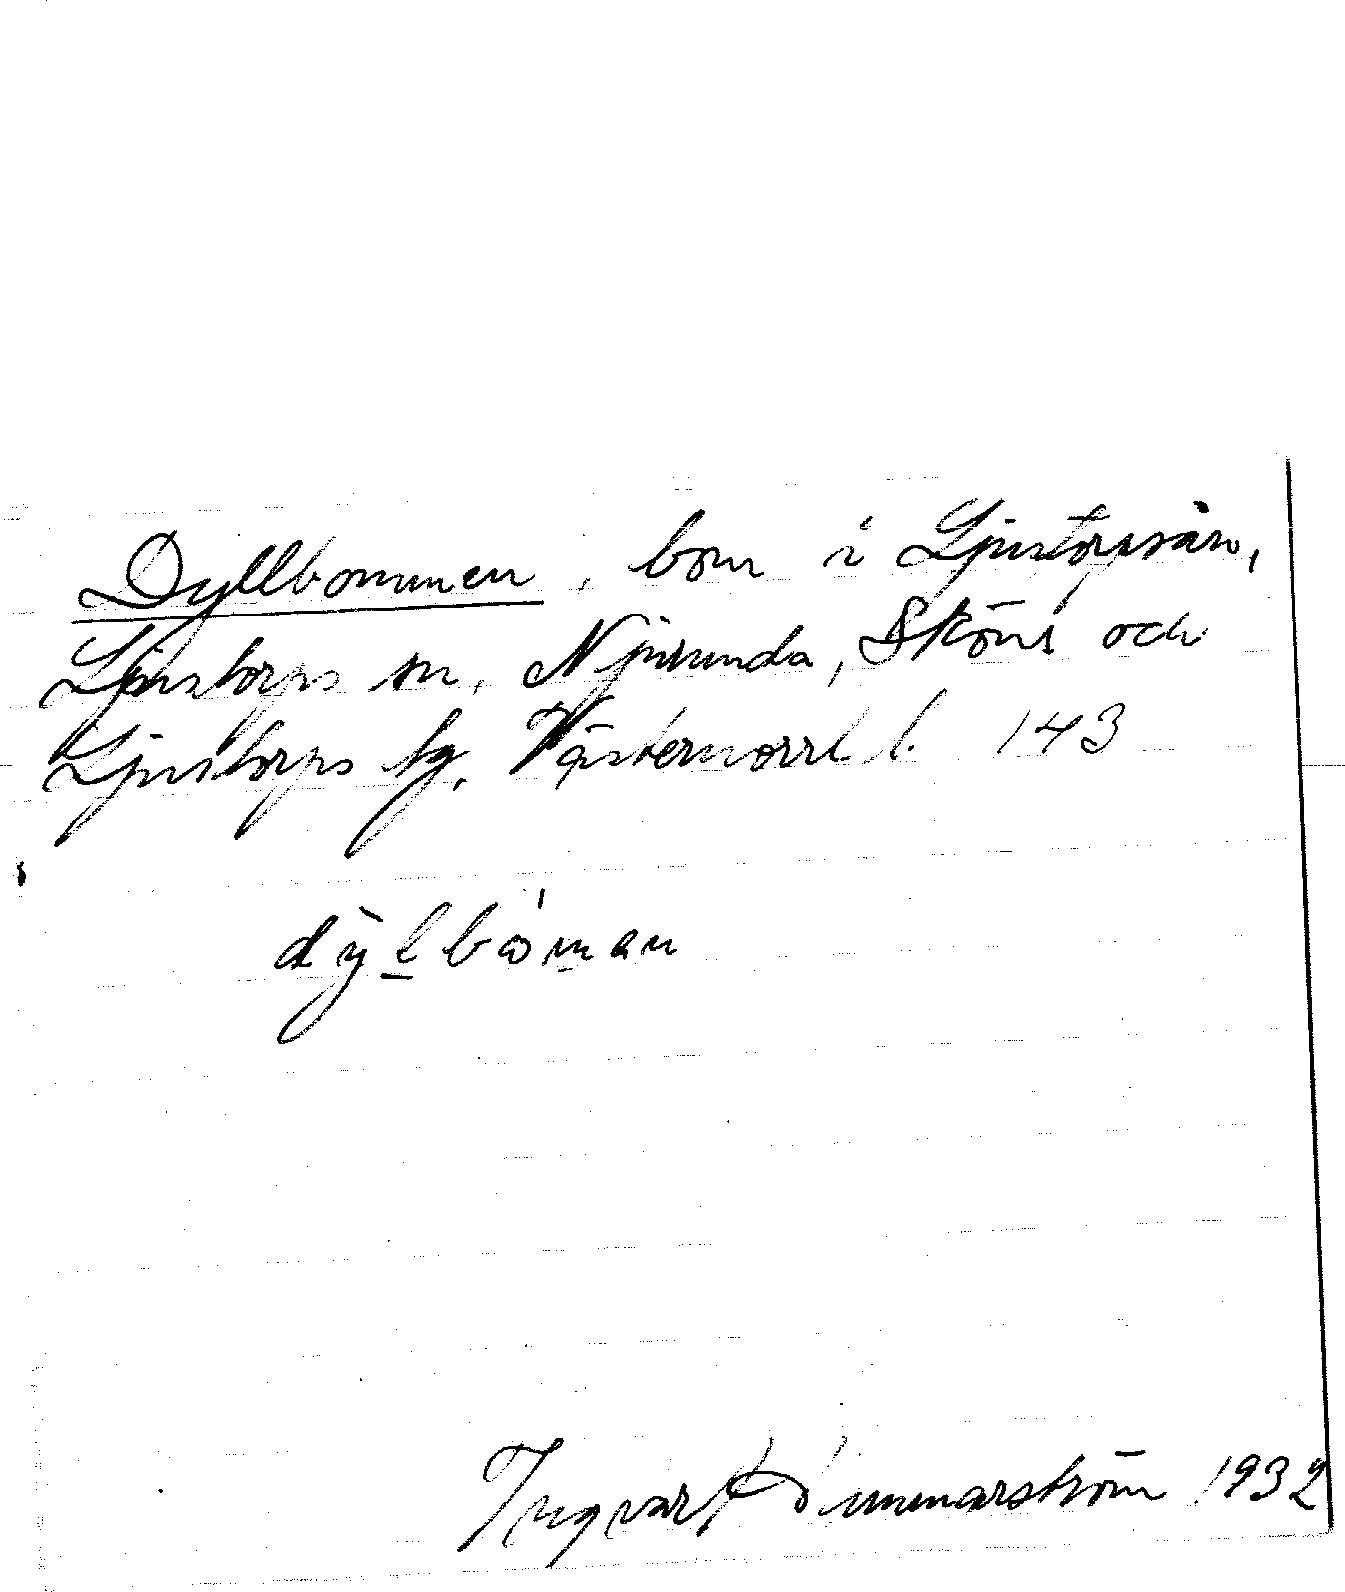 Dyllbommen, bom i Ljustorpsån,
Ljustorps sn, Njurunda, Sköns och
Ljustorps tg, Västernorrl l. 143
dỳlbòman
Ingvar Hammarström 1932